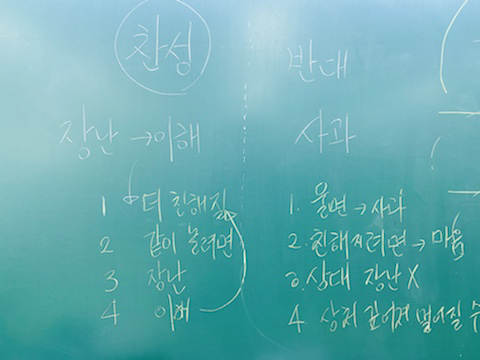 찬성
장난 → 이해
1 더 친해짐
2 같이 놀려면
3 장난
4 이해
반대
사과
1. 울면 → 사과
2. 친해지려면 → 마음
3. 상대 장난 X
4. 상처 깊어져 멀어질 수